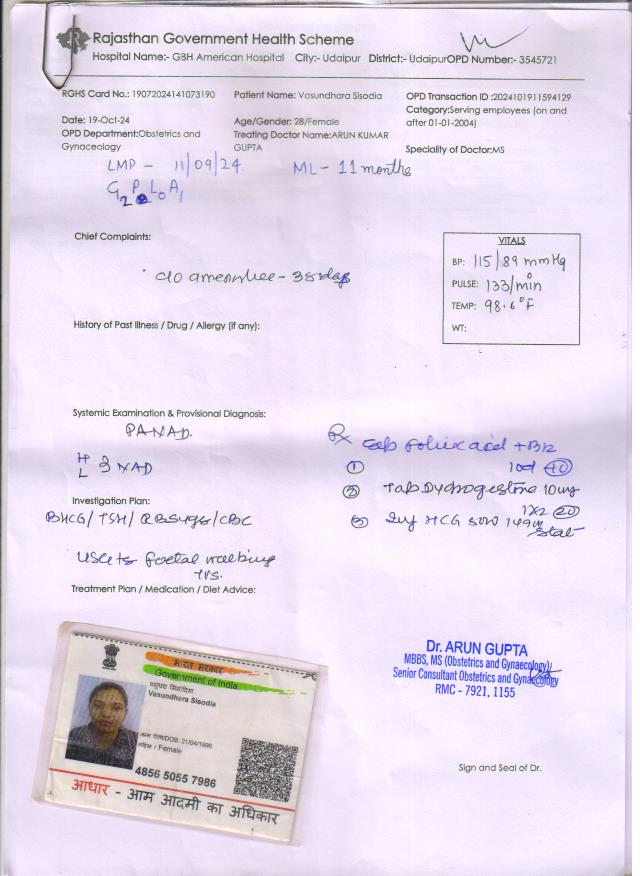 Rajasthan Government Health Scheme
Hospital Name:- GBH American Hospital City:- Udaipur District:- UdaipurOPD Number:- 3545721
RGHS Card No.: 19072024141073190 Patient Name: Vasundhara Sisodia OPD Transaction ID :2024101911594129
Category:Serving employees (on and after 01-01-2004)
Date: 19-Oct-24 Age/Gender: 28/Female
OPD Department:Obstetrics and Gynaceology Treating Doctor Name:ARUN KUMAR GUPTA Speciality of Doctor:MS
LMP - 11/09/24 ML - 11 months
G2 P L0 A1
Chief Complaints:
VITALS
BP: 115/89 mmHg
PULSE: 133/min
TEMP: 98.6°F
WT:
c/o - 38 days
History of Past Illness / Drug / Allergy (if any):
Systemic Examination & Provisional Diagnosis:
PA NAD
H
L } NAD
Rx
① Tab folic acid + B12
1od
② Tab Dydrogestone 10mg
1x2 20
③ Inj HCG
stat
Investigation Plan:
BHCG/TSH/RBSugs/CBC
foetal
TVS.
Treatment Plan / Medication / Diet Advice:
Dr. ARUN GUPTA
MBBS, MS (Obstetrics and Gynaecology)
Senior Consultant Obstetrics and Gynaecology
RMC - 7921, 1155
Sign and Seal of Dr.
भारत सरकार
Government of India
वसुंधरा सिसोदिया
Vasundhara Sisodia
जन्म तिथि/DOB: 21/04/1996
महिला / Female
4856 5055 7986
आधार - आम आदमी का अधिकार